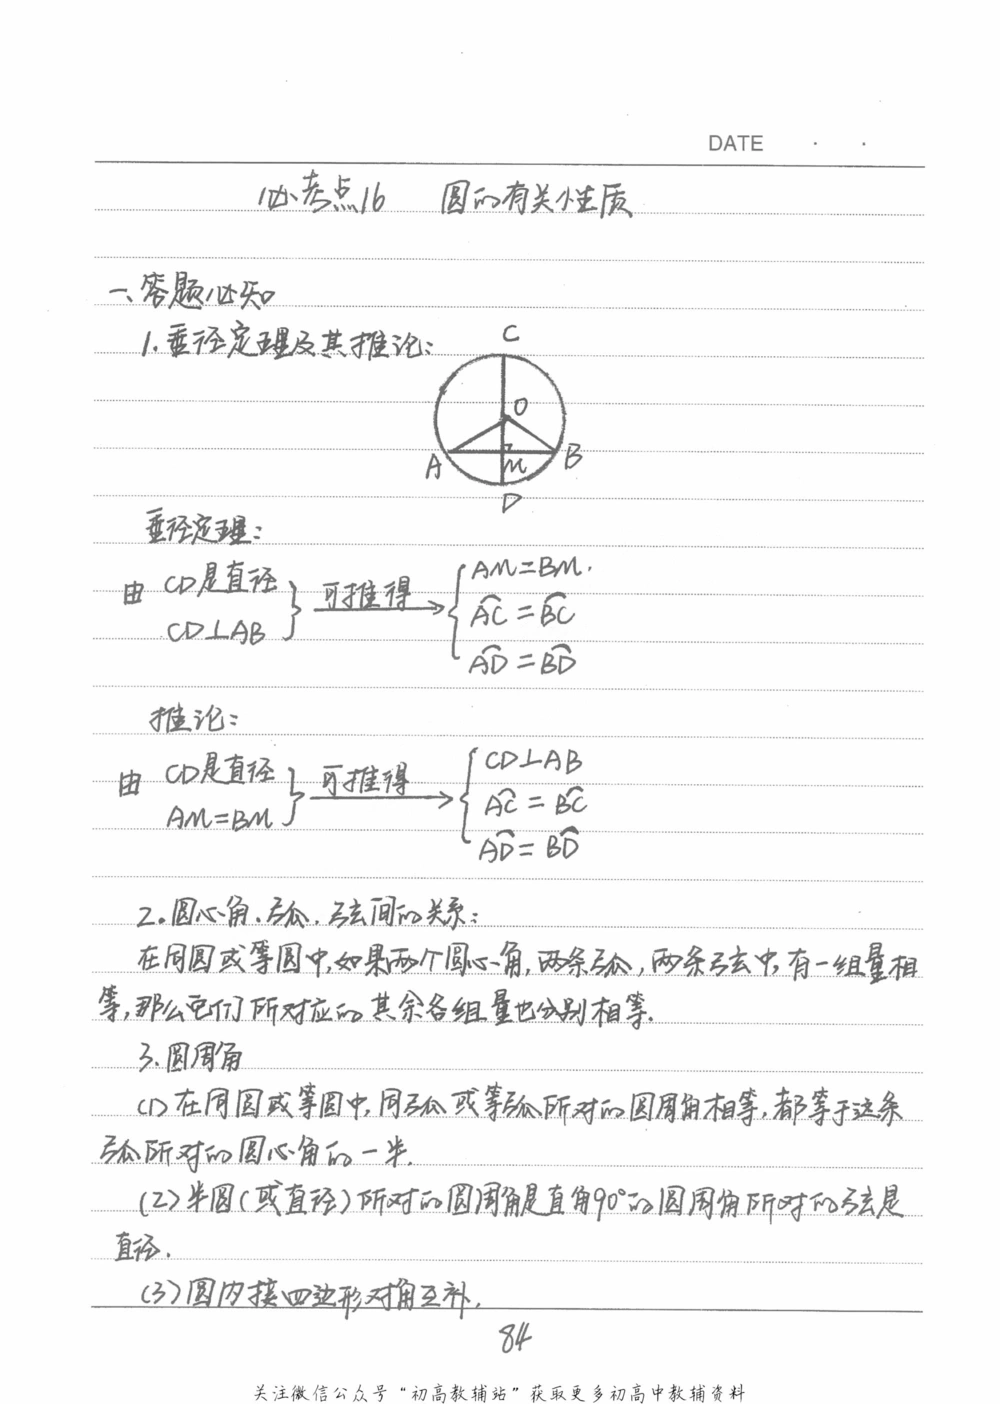 DATE · ·
必考点16 圆的有关性质
一、答题必知
1.垂径定理及其推论:
C
O
A M B
D
垂径定理:
由 CD是直径 CD⊥AB } 可推得 → { AM=BM.
A͡C = B͡C
A͡D = B͡D
推论:
由 CD是直径 AM=BM } 可推得 → { CD⊥AB
A͡C = B͡C
A͡D = B͡D
2.圆心角、弧、弦间的关系:
在同圆或等圆中,如果两个圆心角,两条弧,两条弦中,有一组量相
等,那么它们所对应的其余各组量也分别相等.
3.圆周角
(1)在同圆或等圆中,同弧或等弧所对的圆周角相等,都等于这条
弧所对的圆心角的一半.
(2)半圆(或直径)所对的圆周角是直角90°的圆周角所对的弦是
直径.
(3)圆内接四边形对角互补.
84
关注微信公众号“初高教辅站”获取更多初高中教辅资料